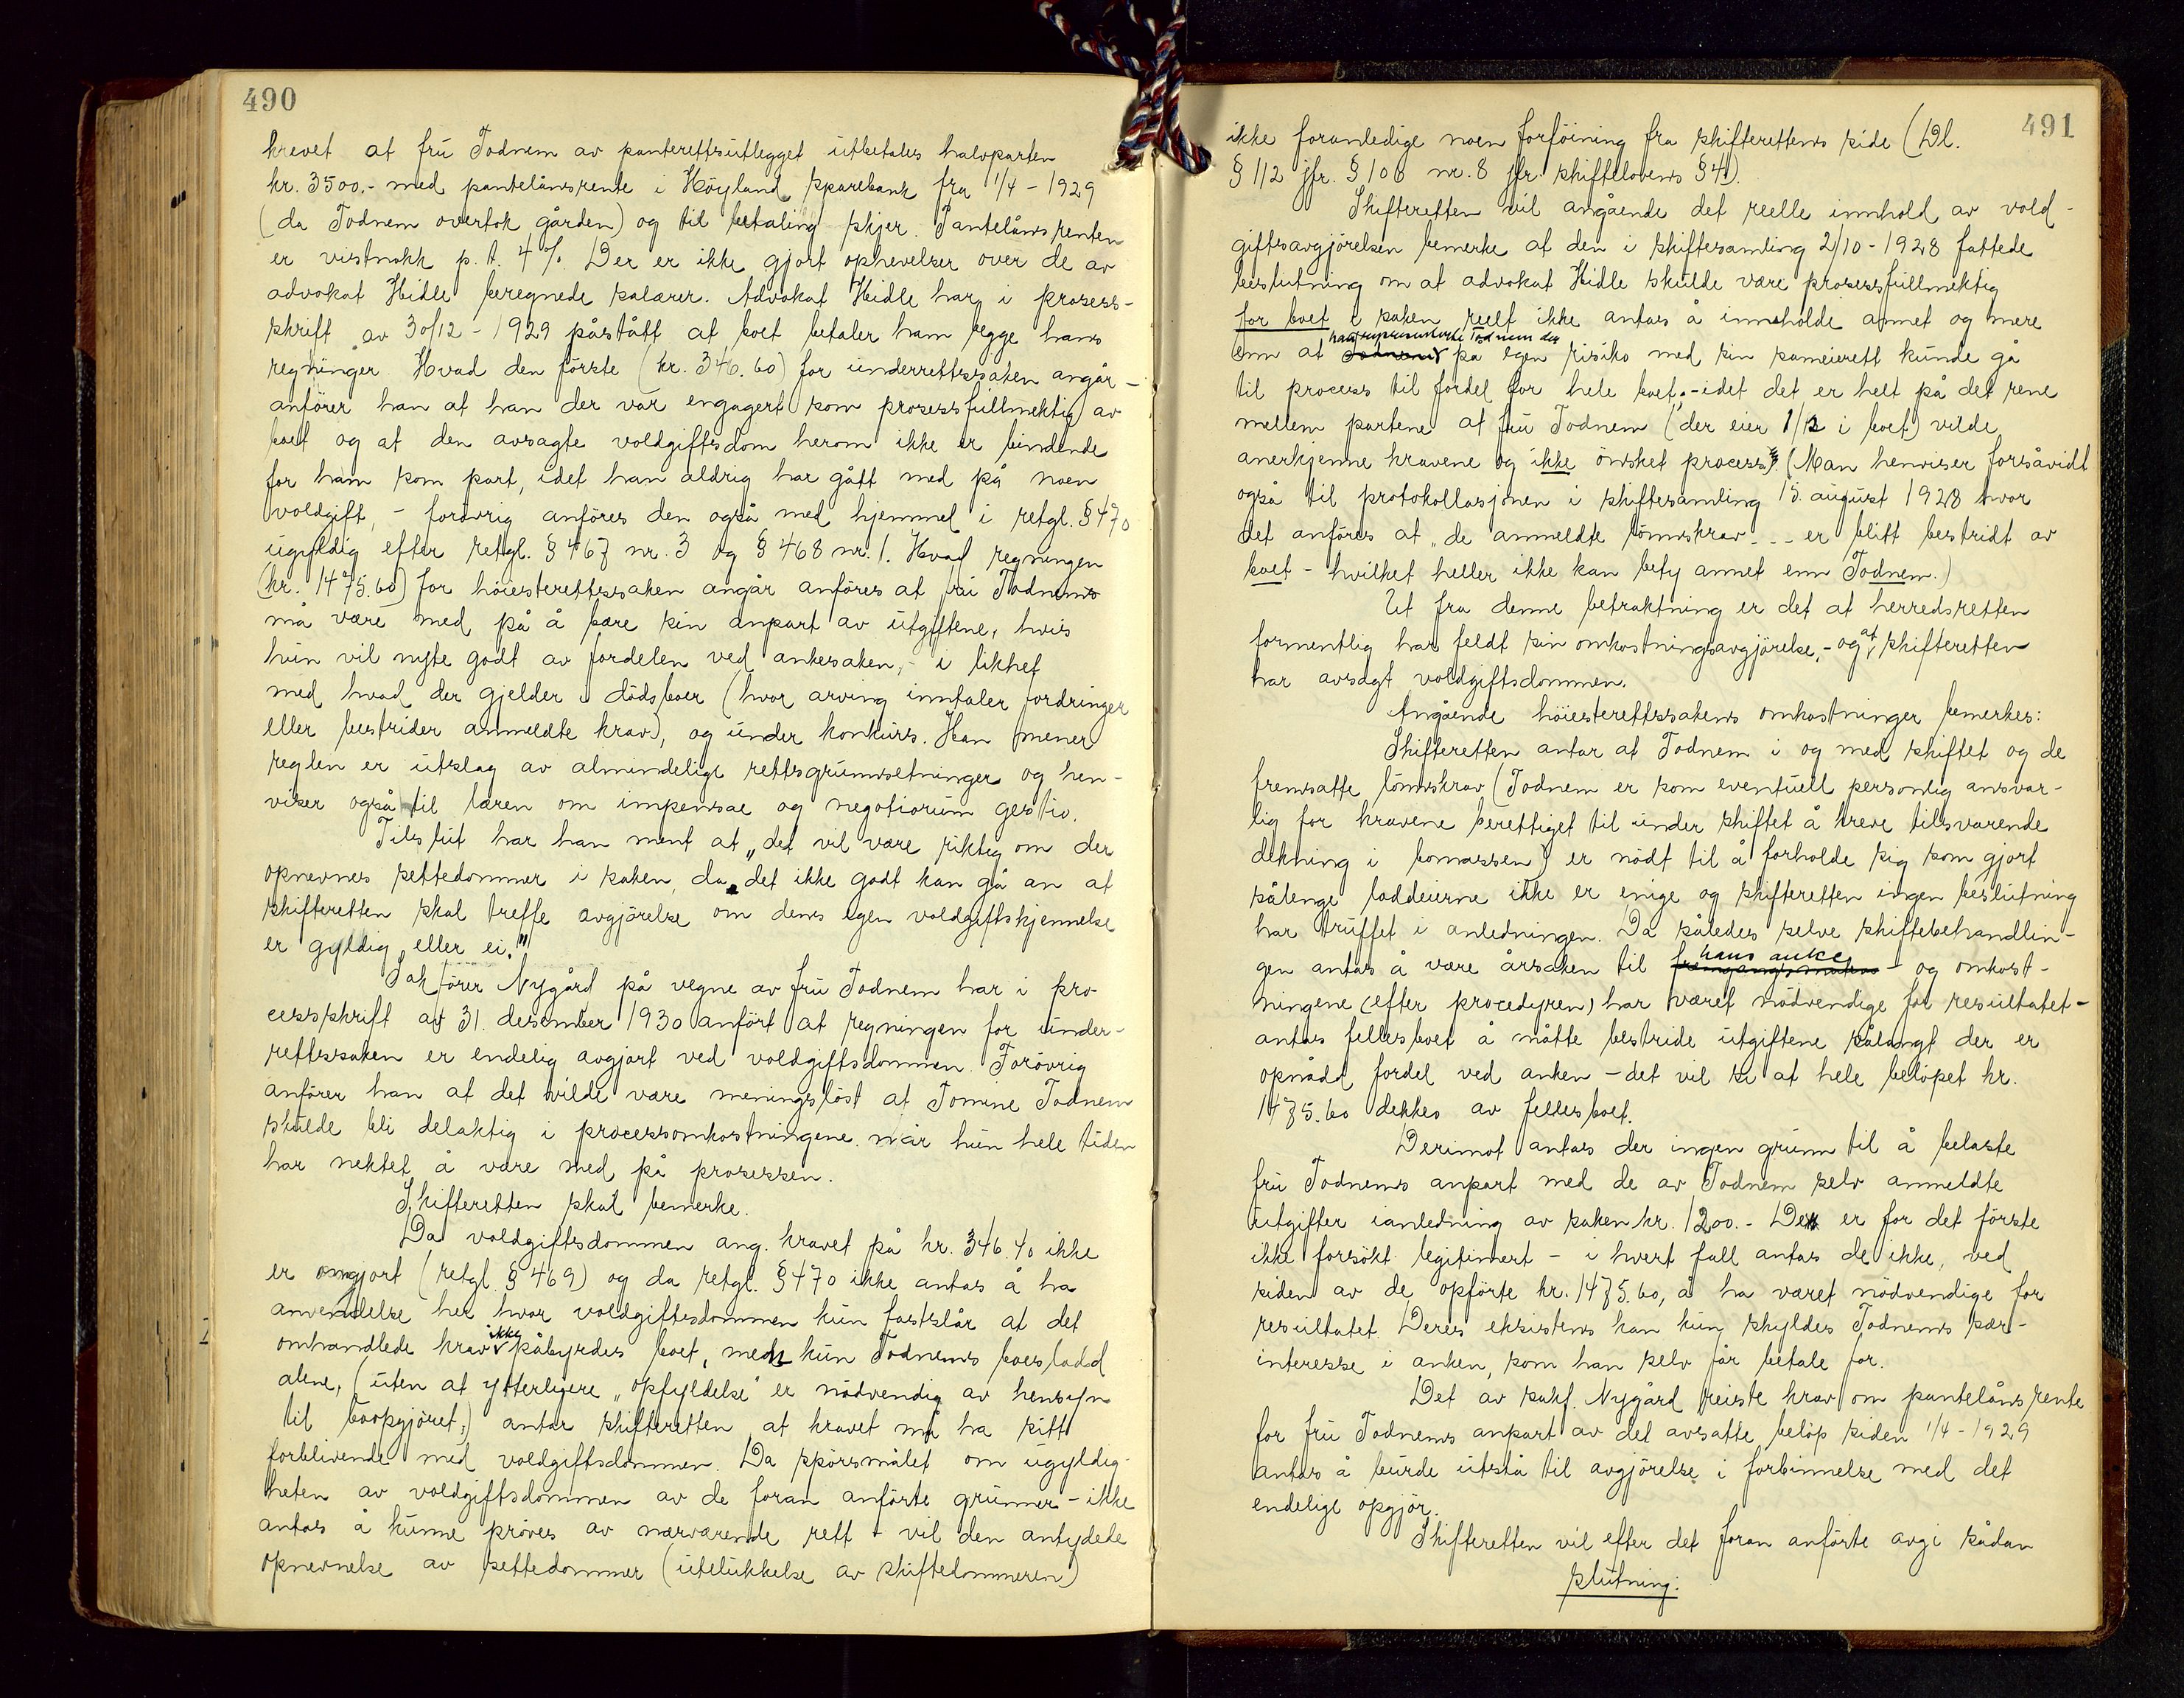 490
krevet at fru Todnem av panterettsutlegget utbetales halvparten
kr. 3500.- med pantelånsrente i Höyland sparebank fra 1/4 - 1929
(da Todnem overtok gården) og til betaling skjer. Pantelånsrenten
er vistnokk p. t. 4 %. Der er ikke gjort ophevelser over de av
advokat Hidle beregnede salærer. Advokat Hidle har i prosess-
skrift av 30/12 - 1929 påstått at boet betaler ham begge hans
regninger. Hvad den förste (kr. 346.60) for underrettssaken angår -
anförer han at han der var engagert som prosessfullmektig av
boet og at den avsagte voldgiftsdom herom ikke er bindende
for ham som part, idet han aldrig har gått med på noen
voldgift, - forövrig anföres den også med hjemmel i retgl. § 470
ugyldig efter retgl. § 467 nr. 3 og § 468 nr. 1. Hvad regningen
(kr. 1475.60) for höiesterettssaken angår anföres at fru Todnem
må være med på å bære sin anpart av utgiftene, hvis
hun vil nyte godt av fordelen ved ankesaken, - i likhet
med hvad der gjelder i dödsboer (hvor arving inntaler fordringer
eller bestrider anmeldte krav), og under konkurs. Han mener
reglen er utslag av almindelige rettsgrunnsetninger og hen-
viser også til læren om impensae og negotiorum gestio.
Tilslut har han ment at „det vil være riktig om der
opnevnes settedommer i saken, da det ikke godt kan gå an at
skifteretten skal treffe avgjörelse om dens egen voldgiftskjennelse
er gyldig eller ei."
Sakförer Nygård på vegne av fru Todnem har i pro-
cesskrift av 31. desember 1930 anfört at regningen for under-
rettssaken er endelig avgjort ved voldgiftsdommen. Forövrig
anförer han at det vilde være meningslöst at Tomine Todnem
skulde bli delaktig i processomkostningene når hun hele tiden
har nektet å være med på prosessen.
Skifteretten skal bemerke.
Da voldgiftsdommen ang. kravet på kr. 346.40 ikke
er omgjort (retgl. § 469) og da retgl. § 470 ikke antas å ha
anvendelse her hvor voldgiftsdommen kun fastslår at det
omhandlede krav ikke påbyrdes boet, men kun Todnems boeslodd
alene, (uten at ytterligere „opfyldelse" er nödvendig av hensyn
til boopgjöret,) antar skifteretten at kravet må ha sitt
forblivende med voldgiftsdommen. Da spörsmålet om ugyldig-
heten av voldgiftsdommen av de foran anförte grunner - ikke
antas å kunne pröves av nærværende rett - vil den antydede
opnevnelse av settedommer (utelukkelse av skiftedommeren)
491
ikke foranledige noen forföining fra skifterettens side (Dl.
§ 112 jfr. § 106 nr. 8 jfr. skiftelovens § 4).
Skifteretten vil angående det reelle innhold av vold-
giftsavgjörelsen bemerke at den i skiftesamling 2/10 - 1928 fattede
beslutning om at advokat Hidle skulde være prosessfullmektig
for boet i saken reelt ikke antas å inneholde annet og mere
enn at han representerte Todnem der på egen risiko med sin sameierett kunde gå
til process til fordel for hele boet, - idet det er helt på det rene
mellem partene at fru Todnem (der eier 1/2 i boet) vilde
anerkjenne kravene og ikke önsket process. (Man henviser forsåvidt
også til protokollasjonen i skiftesamling 15. august 1928 hvor
det anföres at „de anmeldte lönnskrav - - - er blitt bestridt av
boet - hvilket heller ikke kan bety annet enn Todnem.)
Ut fra denne betraktning er det at herredsretten
formentlig har feldt sin omkostningsavgjörelse, - og at skifteretten
har avsagt voldgiftsdommen.
Angående höiesterettssakens omkostninger bemerkes:
Skifteretten antar at Todnem i og med skiftet og de
fremsatte lönnskrav (Todnem er som eventuell personlig ansvar-
lig for kravene berettiget til under skiftet å kreve tilsvarende
dekning i bomassen) er nödt til å forholde sig som gjort
sålenge loddeierne ikke er enige og skifteretten ingen beslutning
har truffet i anledningen. Da således selve skiftebehandlin-
gen antas å være årsaken til hans anke - og omkost-
ningene (efter procedyren) har været nödvendige for resultatet -
antas fellesboet å måtte bestride utgiftene sålangt der er
opnådd fordel ved anken - det vil si at hele belöpet kr.
1475.60 dekkes av fellesboet.
Derimot antas der ingen grunn til å belaste
fru Todnems anpart med de av Todnem selv anmeldte
utgifter i anledning av saken kr. 1200.- De er for det förste
ikke forsökt legitimert - i hvert fall antas de ikke, ved
siden av de opförte kr. 1475.60, å ha været nödvendige for
resultatet. Deres eksistens kan kun skyldes Todnems sær-
interesse i anken, som han selv får betale for.
Det av sakf. Nygård reiste krav om pantelånsrente
for fru Todnems anpart av det avsatte belöp siden 1/4 - 1929
antas å burde utstå til avgjörelse i forbinnelse med det
endelige opgjör.
Skifteretten vil efter det foran anförte avgi sådan
slutning: